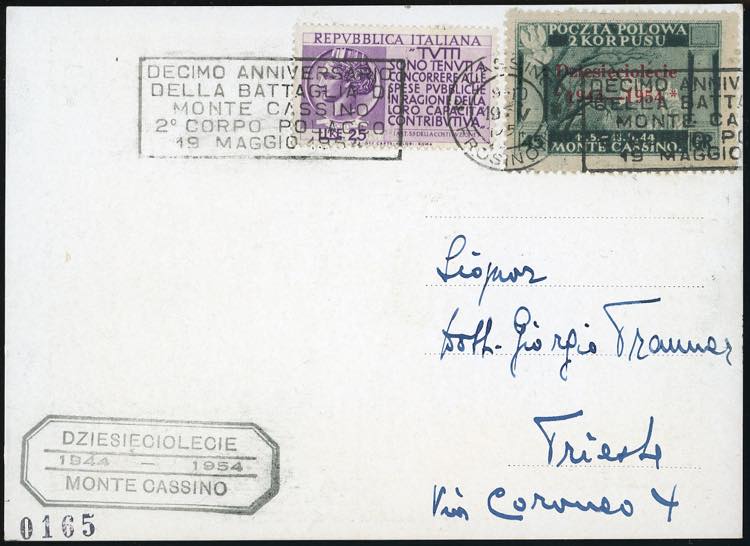 REPVBBLICA ITALIANA
"TVTTI
SONO TENVTI A
CONCORRERE ALLE
SPESE PVBBLICHE
IN RAGIONE DELLA
LORO CAPACITÀ
CONTRIBVTIVA„
ART. 53 DELLA COSTITUZIONE
LIRE 25
POCZTA POLOWA
2 KORPUSU
Dziesieciolecie
1944-1954*
45 GR.
.5.-19.5.44
MONTE CASSINO.
DECIMO ANNIVERSARIO
DELLA BATTAGLIA DI
MONTE CASSINO
2° CORPO POLACCO
19 MAGGIO 1954
DECIMO ANNIV
BATTA
MONTE CA
PO
19 MAGGIO
Signor
Dott. Giorgio
Trieste
Via Coroneo 4
DZIESIĘCIOLECIE
1944 - 1954
MONTE CASSINO
0165